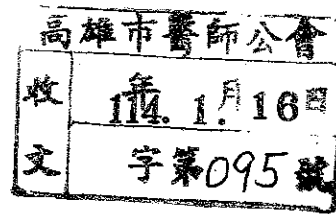 高雄市醫師公會
收文
114年1月16日
字第095號